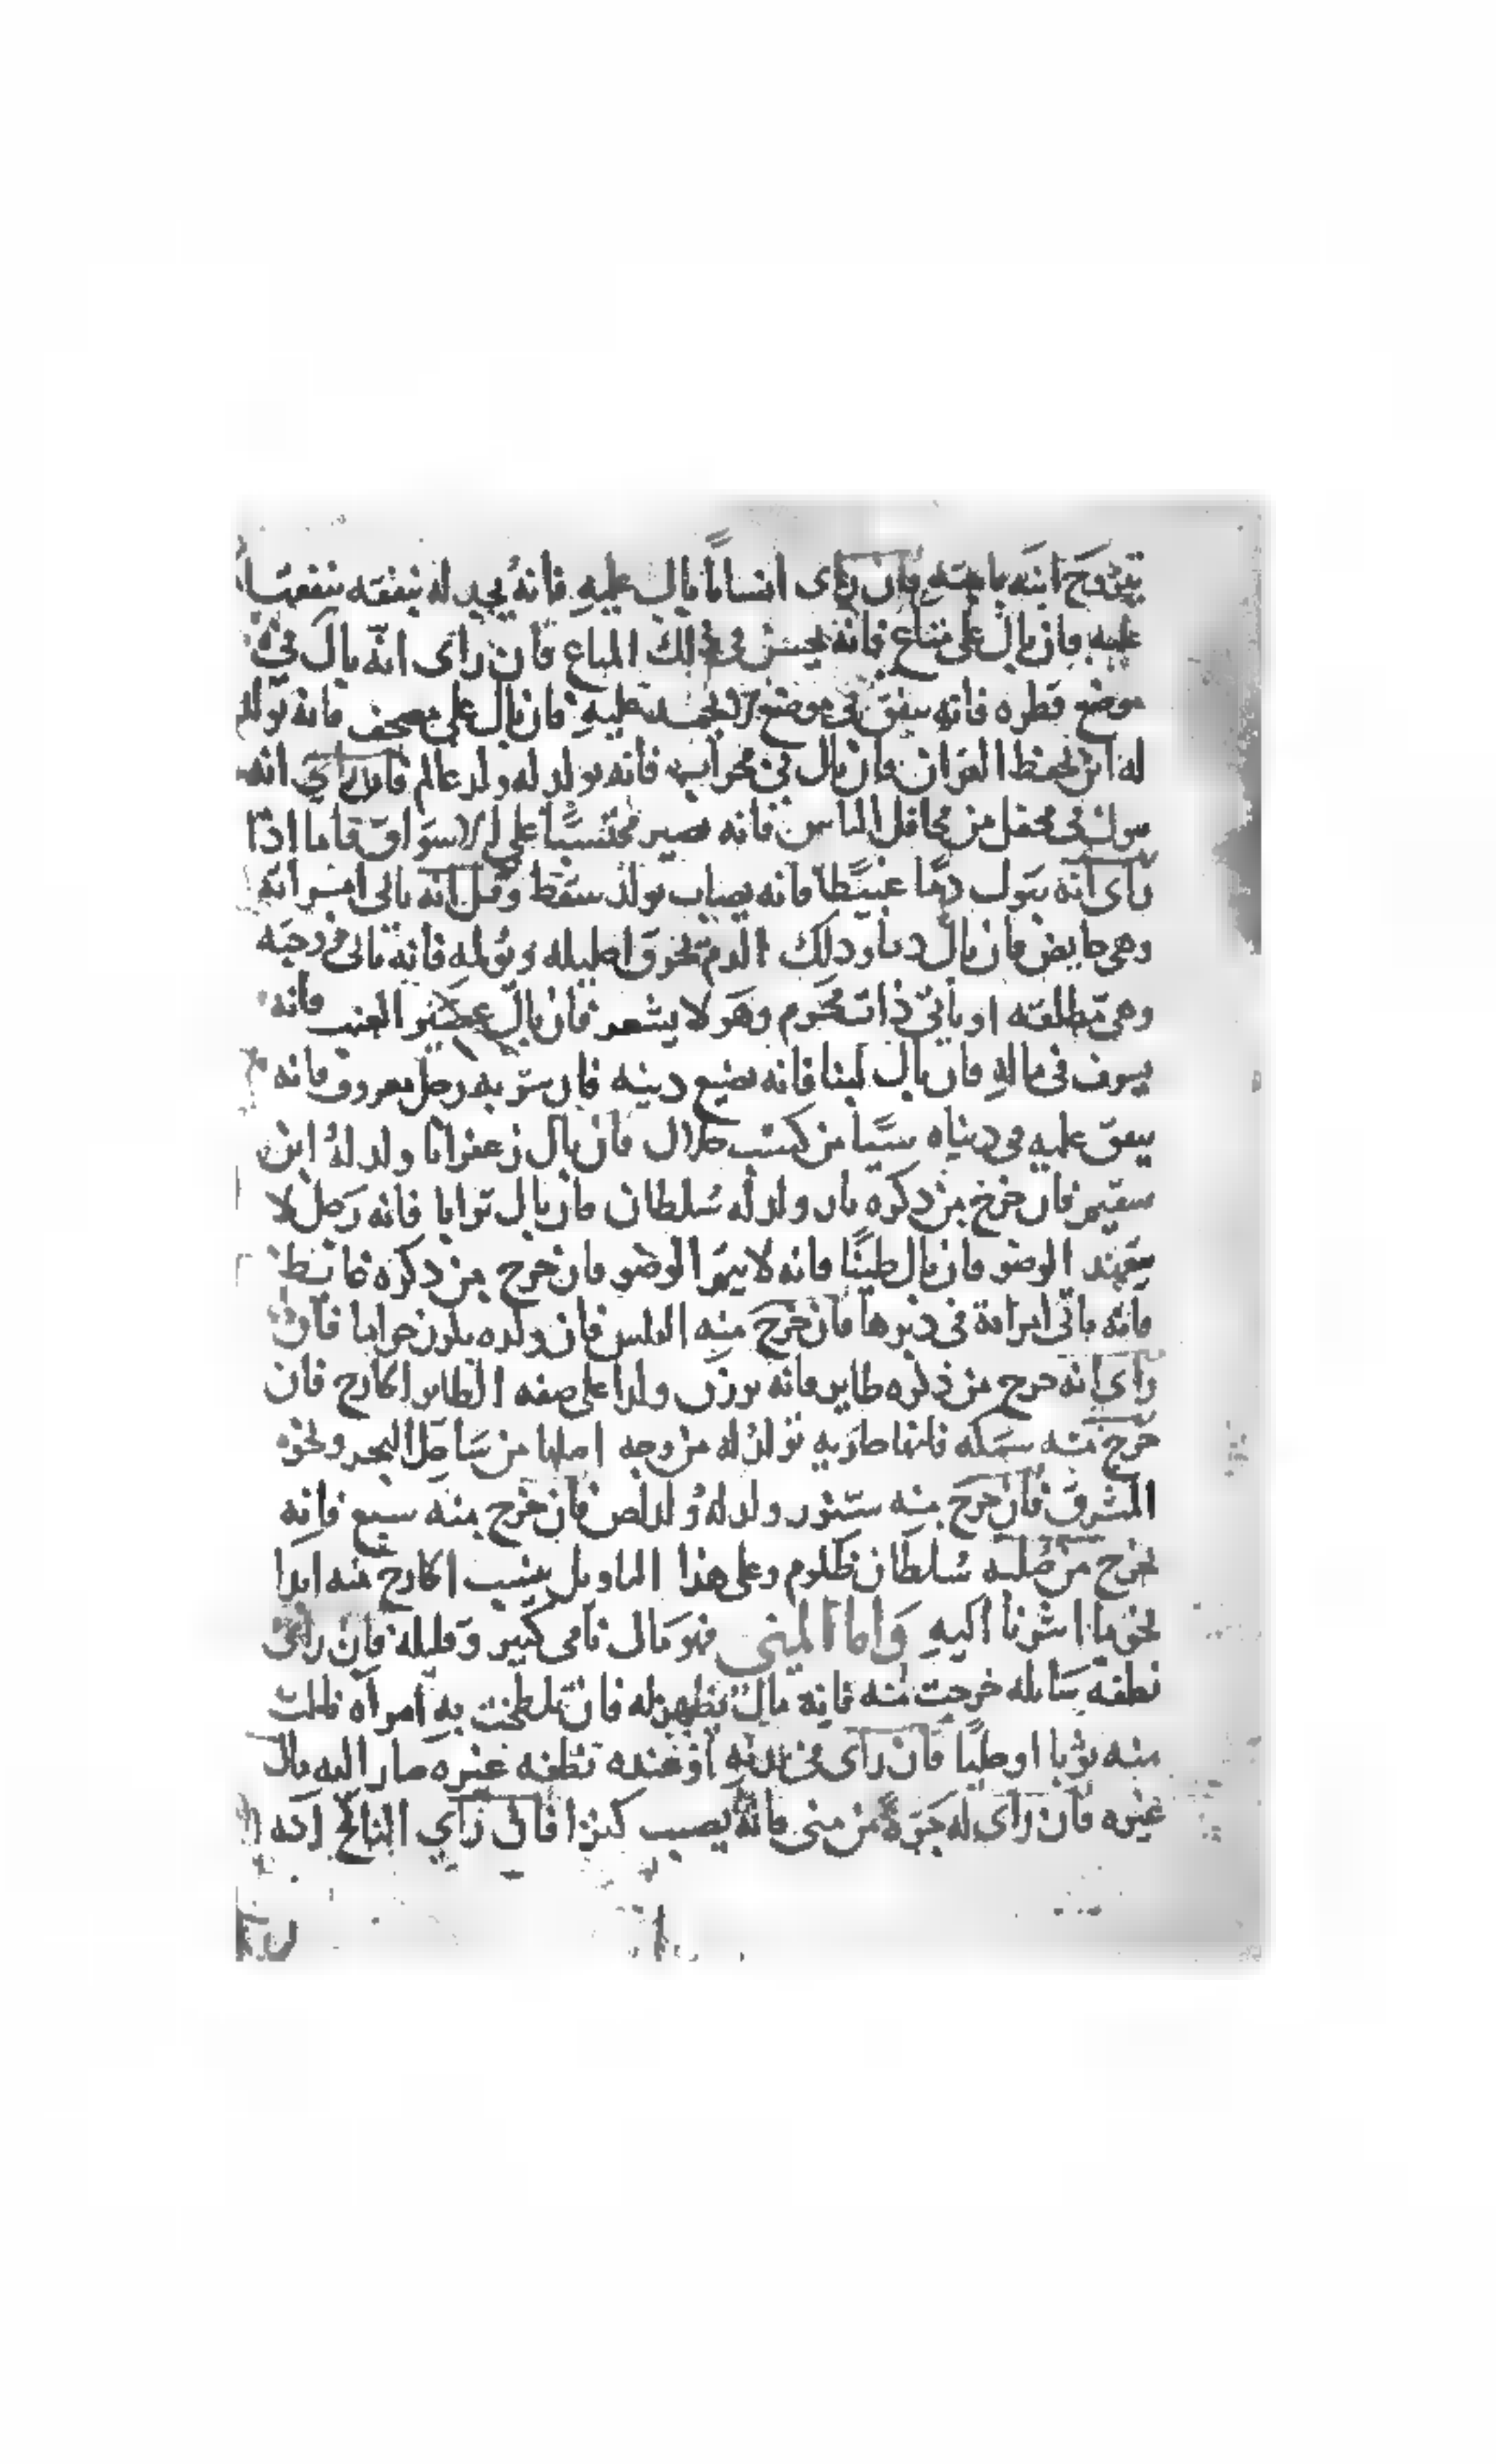 يتزوج ابنه بابنته فان رأى انسانا بال عليه فانه يجد له نفقه ينفقها
عليه فان بال على متاع فانه يحسن في ذلك المتاع فان رأى انه بال في
موضع قطره فانه ينفق في موضع لا يحمد عليه فان بال على مصحف فانه يولد
له ابن يحفظ القران فان بال في محراب فانه يولد له ولد عالم فان رأى انه
يبول في محفل من محافل الناس فانه يصير محتسبا على الاسواق فاما اذا
رأى انه يبول دما عبيطا فانه يصاب بولد سقط وقيل انه ياتي امراته
وهي حايض فان بال دما وذلك الدم يحرق احليله ويؤلمه فانه ياتي زوجته
وهي مطلقه او ياتي ذات محرم وهو لا يشعر فان بال عصير العنب فانه
يسرف في ماله فان بال لبنا فانه يضيع دينه فان شربه رجل معروف فانه
ينفق عليه في دنياه شيا من كسب حلال فان بال زعفرانا ولد له ابن
سقيم فان خرج من ذكره نار ولد له سلطان فان بال ترابا فانه رجل لا
يتعهد الوضو فان بال طينا فانه لا يتم الوضو فان خرج من ذكره غايط
فانه ياتي امراة في دبرها فان خرج منه الفلس فان ولده يكون فان
رأى انه خرج من ذكره طاير فانه يرزق ولدا على صفه الطاير الخارج فان
خرج منه سمكه فانها جاريه تولد له من وجه اصلها من ساحل البحر ونحوه
المشرق فان خرج منه سنور ولد له ولد لص فان خرج منه سبع فانه
يخرج من صلبه سلطان ظلوم وعلى هذا التاويل ينسب الخارج منه ابدا
نحو ما اشرنا اليه واما المني فهو مال نامي كثير وقليله فان رأى
نطفه سايله خرجت منه فانه مال يظهر له فان تلطخت به امراه نالت
منه ثوبا او حليا فان رأى في بدنه او عنده نطفه غيره صار اليه مال
غيره فان رأى له جرة من مني فانه يصيب كنزا فان رأى الناكح انه